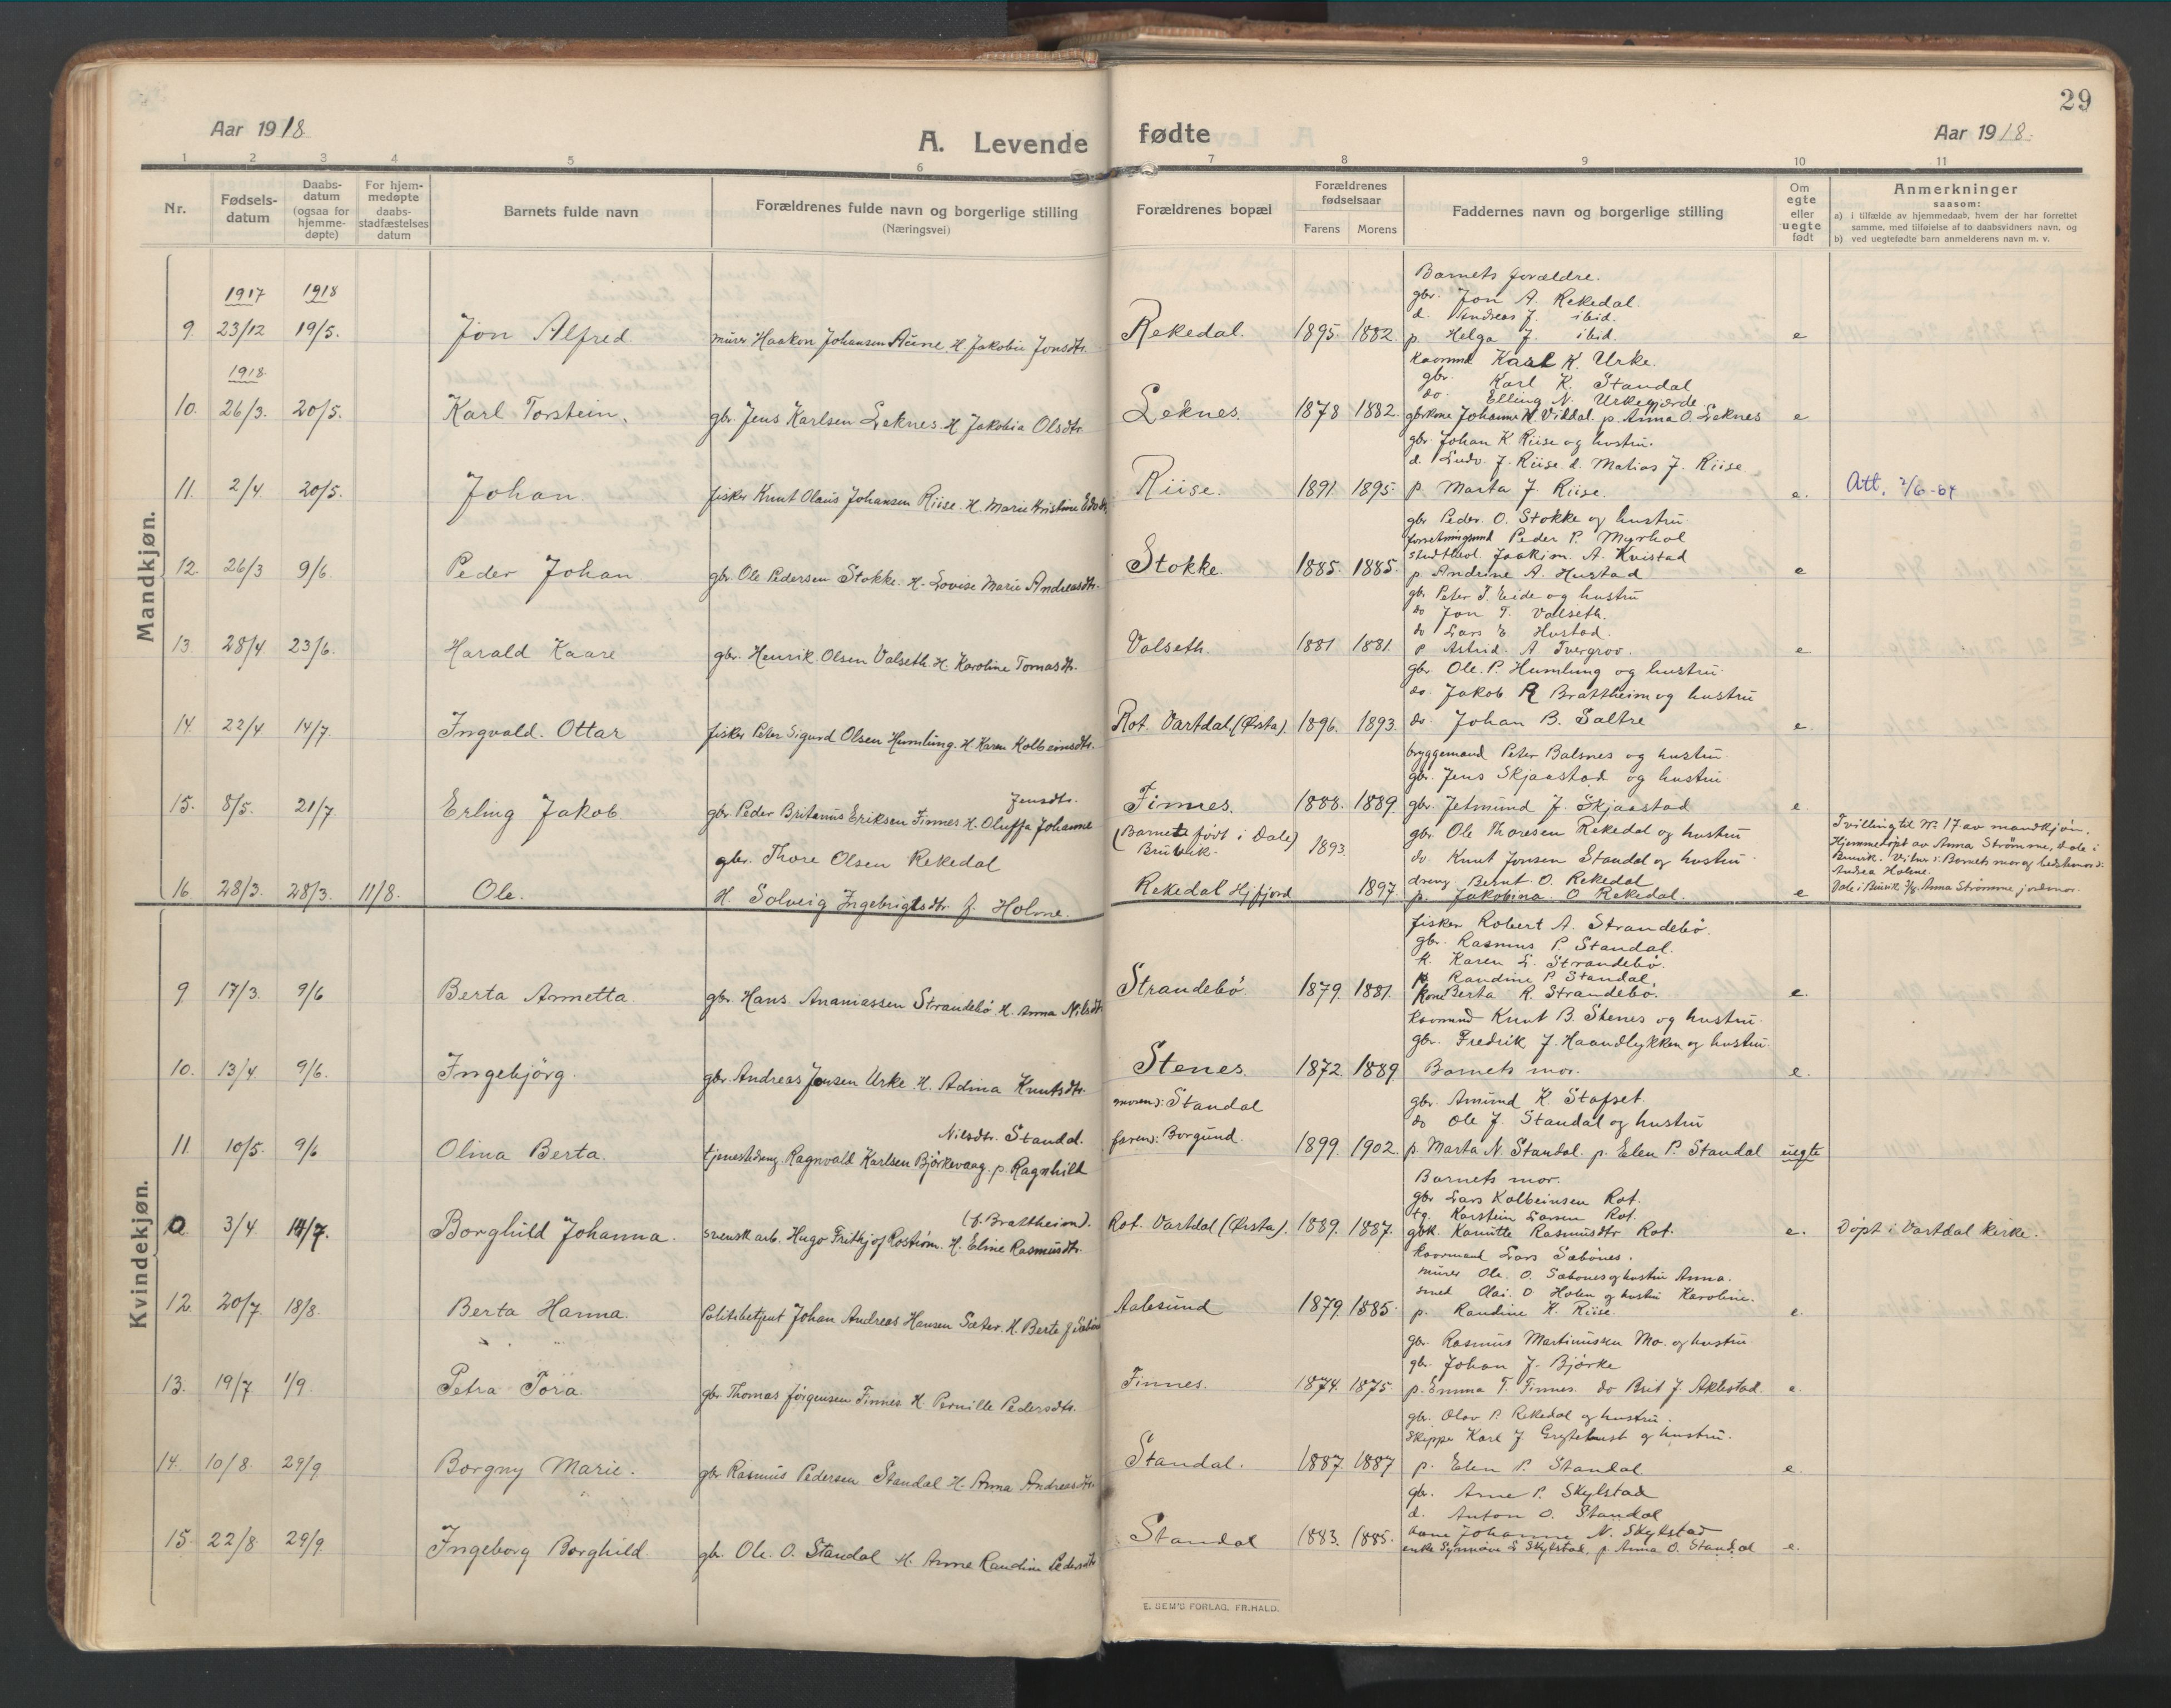 29
Aar 1918
A. Levende fødte
Aar 1918
1 2 3 4 5 6 7 8 9 10 11
Nr.
Fødsels-
datum
Daabs-
datum
(ogsaa for
hjemme-
døpte)
For hjem-
medøpte
daabs-
stadfæstelses
datum
Barnets fulde navn
Forældrenes fulde navn og borgerlige stilling
(Næringsvei)
Forældrenes bopæl
Forældrenes
fødselsaar
Farens Morens
Faddernes navn og borgerlige stilling
Om
egte
eller
uegte
født
Anmerkninger
saasom:
a) i tilfælde av hjemmedaab, hvem der har forrettet
samme, med tilføielse af to daabsvidners navn, og
b) ved uegtefødte barn anmelderens navn m. v.
Mandkjøn.
1917 1918
9. 23/12 19/5. Jon Alfred. murer Haakon Johansen Aune. H. Jakobie Jonsdtr. Rekedal. 1895. 1882. e
Barnets forældre.
gbr. Jon A. Rekedal.
d. Andreas J. ibid.
p. Helga J. ibid.
1918.
10. 26/3. 20/5. Karl Torstein. gbr. Jens Karlsen Leknes. H. Jakobia Olsdtr. Leknes. 1878 1882. e
Kaarmd Karl K. Urke.
gbr. Karl K. Standal
do. Elling N. Urkegjærde
gbrkone Johanne N. Viddal. p. Anna O. Leknes
11. 2/4. 20/5. Johan fisker Knut Olaus Johansen Riise. H. Marie Kristine Edvdtr. Riise. 1891. 1895. e. Att. 2/6-64
gbr. Johan K. Riise og hustru.
d. Ludv. J. Riise. d. Matias J. Riise
p. Marta J. Riise.
12. 26/3 9/6. Peder Johan gbr. Ole Pedersen Stokke. H. Lovise Marie Andreasdtr. Stokke. 1885. 1885. e
gbr. Peder O. Stokke og hustru.
forretningsmd Peder P. Myrhol
stud theol. Joakim. A. Kvistad
p. Andrine A. Hustad
13. 28/4 23/6. Harald Kaare gbr. Henrik Olsen Valseth H. Karoline Tomasdtr. Valseth. 1881 1881. e
gbr. Peter J. Eide og hustru
do Jon T. Valseth.
do Lars E. Hustad.
p Astrid A. Tvergrov.
14. 22/4 14/7. Ingvald. Ottar fisker Peter Sigurd Olsen Humlung. H. Karen Kolbeinsdtr. Rot Vartdal (Ørsta). 1896. 1893. e.
gbr. Ole. P. Humlung og hustru.
do. Jakob R Brattheim og hustru
do. Johan B. Saltre
15. 8/5. 21/7 Erling Jakob gbr. Peder Britanus Eriksen Finnes H. Oluffa Johanne Jensdtr. Finnes. 1888. 1889. e.
bryggemand Peter Balsnes og hustru
gbr. Jens Skjaastad og hustru
gbr. Jetmund J. Skjaastad
16. 28/3. 28/3. 11/8. Ole. gbr. Thore Olsen Rekedal
H. Solveig Ingebrigtsdtr. f. Holme.
(Barnet født i Dale)
Bruvik.
Rekedal Hj.fjord 1893. 1897. e
gbr Ole Thoresen Rekedal og hustru
do Knut Jonsen Standal og hustru
dreng Bernt. O. Rekedal
p. Jakobina. O Rekedal.
Tvilling til Nr. 17 av mandkjøn.
Hjemmedøpt av Anna Strømme, Dale i
Bruvik. Vitner: Barnets mor og bedstemor:
Andrea Holene.
Dale i Bruvik Anna Strømme jordmor.
Kvindekjøn.
9 17/3. 9/6 Berta Annetta. gbr. Hans Ananiassen Strandebø. H. Anna Nilsdtr Strandebø. 1879. 1881. e.
fisker Robert A. Strandebø.
gbr. Rasmus P. Standal.
K. Karen L. Strandebø.
p. Randine P. Standal.
Kone Berta R. Strandebø.
10. 13/4. 9/6. Ingebjørg. gbr. Andreas Jonsen Urke. H. Adina Knutsdtr. Stenes. 1872 1889. e.
Kaarmand Knut B. Stenes og hustru.
gbr. Fredrik J. Haandlykken og hustru.
Barnets mor.
11. 10/5. 9/6 Olina Berta. tjenestedreng Ragnvald Karlsen Bjørkevaag. p. Ragnhild Nilsdtr. Standal. moren): Standal
faren): Borgund. 1899. 1902. uegte
gbr. Amund K. Stafset
do Ole J. Standal og hustru
p. Marta N. Standal. p. Elen P. Standal
0. 3/4. 14/7. Borghild Johanna. svensk arb. Hugo Fritkjof Rostrøm. H. Eline Rasmusdtr. (f. Brattheim). Rot. Vartdal (Ørsta). 1889. 1887. e. Døpt i Vartdal kirke.
Barnets mor.
gbr Lars Kolbeinsen Rot.
tg. Karstein Larsen Rot.
gbk. Kanutte Rasmusdtr Rot.
12. 20/7. 18/8. Berta Hanna. Politibetjent Johan Andreas Hansen Sæter. H. Berte J Aalesund 1879. 1885. e.
Kaarmand Lars Sæbønes.
murer Ole. O. Sæbones og hustru Anna.
smed Olai. O Holen og hustru Karoline.
p. Randine K. Riise.
13. 19/7 1/9. Petra Tora. gbr. Thomas Jørgensen Finnes H. Pernille Pedersdtr. Finnes. 1874. 1875. e.
gbr. Rasmus Martinussen Mo. og hustru.
gbr. Johan J. Bjørke
p. Emma T. Finnes. do Brit J. Aklestad.
14. 10/8. 29/9 Borgny Marie. gbr Rasmus Pedersen Standal H. Anna Andreasdtr. Standal. 1887. 1887 e.
gbr. Olav P. Rekedal og hustru.
Skipper Karl J. og hustru.
p. Elen P. Standal.
15. 22/8. 29/9 Ingeborg Borghild. gbr. Ole. O. Standal H. Anne Randine Pedersdtr Standal 1883. 1885. e.
gbr. Arne P. Skylstad
d. Anton O. Standal
kone Johanne N. Skylstad
enke Synnøve L Skylstad, p. Anna O. Standal
E. SEM'S FORLAG, FR.HALD.